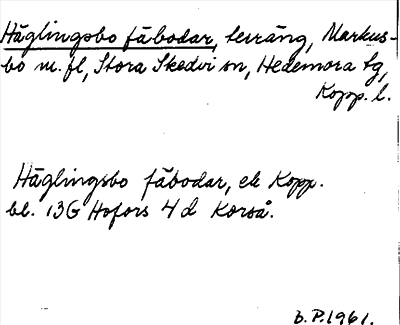 Häglingsbo fäbodar, terräng, Markus-
bo m. fl, Stora Skedvi sn, Hedemora tg,
Kopp. l.
Häglingsbo fäbodar, ek Kopp.
bl. 13G Hofors 4d Korså.
B.P.1961.